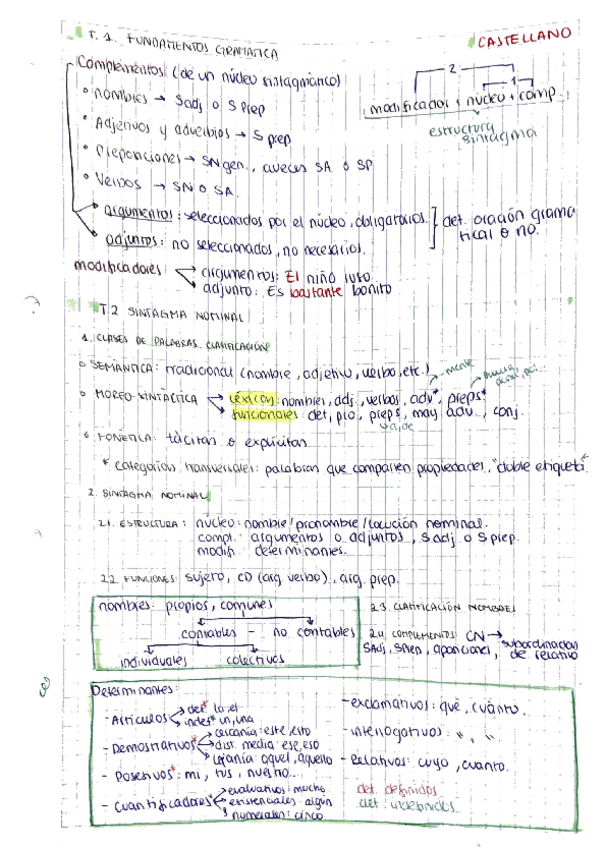 T.1. FUNDAMENTOS GRAMATICA
CASTELLANO
Complementos (de un núcleo sintagmático)
2
1
modificador + núcleo + comp.
estructura sintagma
° nombres → Sadj o S prep
° Adjetivos y adverbios → S prep
° Preposiciones → SN gen., a veces SA o SP
° Verbos → SN o SA.
argumentos: seleccionados por el núcleo, obligatorios.
adjuntos: no seleccionados, no necesarios.
det. oración gramatical o no.
modificadores
argumentos: El niño
adjunto: Es bastante bonito
T.2 SINTAGMA NOMINAL
1. CLASES DE PALABRAS. CLASIFICACIÓN
° SEMANTICA: tradicional (nombre, adjetivo, verbo, etc.)
-mente
° MORFO-SINTÁCTICA
léxicas: nombres, adj., verbos, adv*, preps*
funcionales: det, pro, preps*, may adv.., conj.
a, de
° FONÉTICA: tácitas o explícitas
* categorías transversales: palabras que comparten propiedades, "doble etiqueta"
2. SINTAGMA NOMINAL
2.1. ESTRUCTURA: núcleo: nombre/pronombre/locución nominal.
compl: argumentos o adjuntos, S adj o S prep.
modif: determinantes.
2.2 FUNCIONES: sujeto, CD (arg verbo), arg. prep.
nombres: propios, comunes
contables - no contables
individuales colectivos
2.3. CLASIFICACIÓN NOMBRES
2.4. COMPLEMENTOS: CN →
SAdj, SPrep, aposiciones, subordinadas de relativo
Determinantes:
- Artículos
def* la, el
indef* un, una
- Demostrativos*
cercanía: este, esto
dist. media: ese, eso
lejanía: aquel, aquello
- Posesivos*: mi, tus, nuestro...
- cuantificadores*
evaluativos: mucho
existenciales: algún
numerales: cinco
- exclamativos: qué, cuánto.
- interrogativos: ", "
- Relativos: cuyo, cuanto.
det. definidos
det. indefinidos